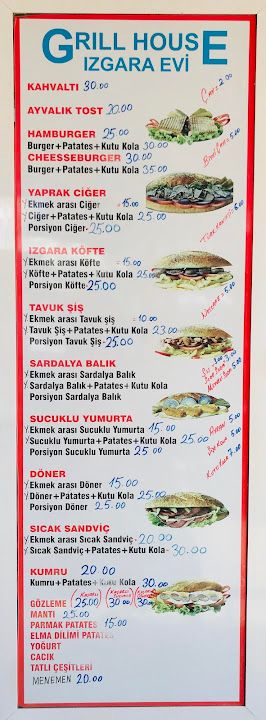 GRILL HOUSE
IZGARA EVİ
KAHVALTI 30.00
Çay: 2.00
AYVALIK TOST 20.00
HAMBURGER 25.00
Burger+Patates+Kutu Kola 30.00
CHEESEBURGER 30.00
Burger+Patates+Kutu Kola 35.00
YAPRAK CİĞER
Ekmek arası Ciğer =15.00
Ciğer+Patates+Kutu Kola 25.00
Porsiyon Ciğer-25.00
IZGARA KÖFTE
Ekmek arası Köfte =15.00
Köfte+Patates+Kutu Kola 25.00
Porsiyon Köfte-25.00
Nescafe: 5.00
TAVUK ŞİŞ
Ekmek arası Tavuk şiş =10.00
Tavuk Şiş+Patates+Kutu Kola 23.00
Porsiyon Tavuk Şiş:25.00
SARDALYA BALIK
Ekmek arası Sardalya Balık
Sardalya Balık+Patates+Kutu Kola
Porsiyon Sardalya Balık
SUCUKLU YUMURTA
Ekmek arası Sucuklu Yumurta 15.00
Sucuklu Yumurta+Patates+Kutu Kola 25.00
Porsiyon Sucuklu Yumurta 25.00
Ayran 5.00
Kutu Kola 7.00
DÖNER
Ekmek arası Döner 15.00
Döner+Patates+Kutu Kola 25.00
Porsiyon Döner 25.00
SICAK SANDVİÇ
Ekmek arası Sıcak Sandviç-20.00
Sıcak Sandviç+Patates+Kutu Kola-30.00
KUMRU 20.00
Kumru+Patates+Kutu Kola 30.00
GÖZLEME 25.00 30.00 30.00
MANTI 25.00
PARMAK PATATES 15.00
ELMA DİLİMİ PATATES
YOĞURT
CACIK
TATLI ÇEŞİTLERİ
MENEMEN 20.00